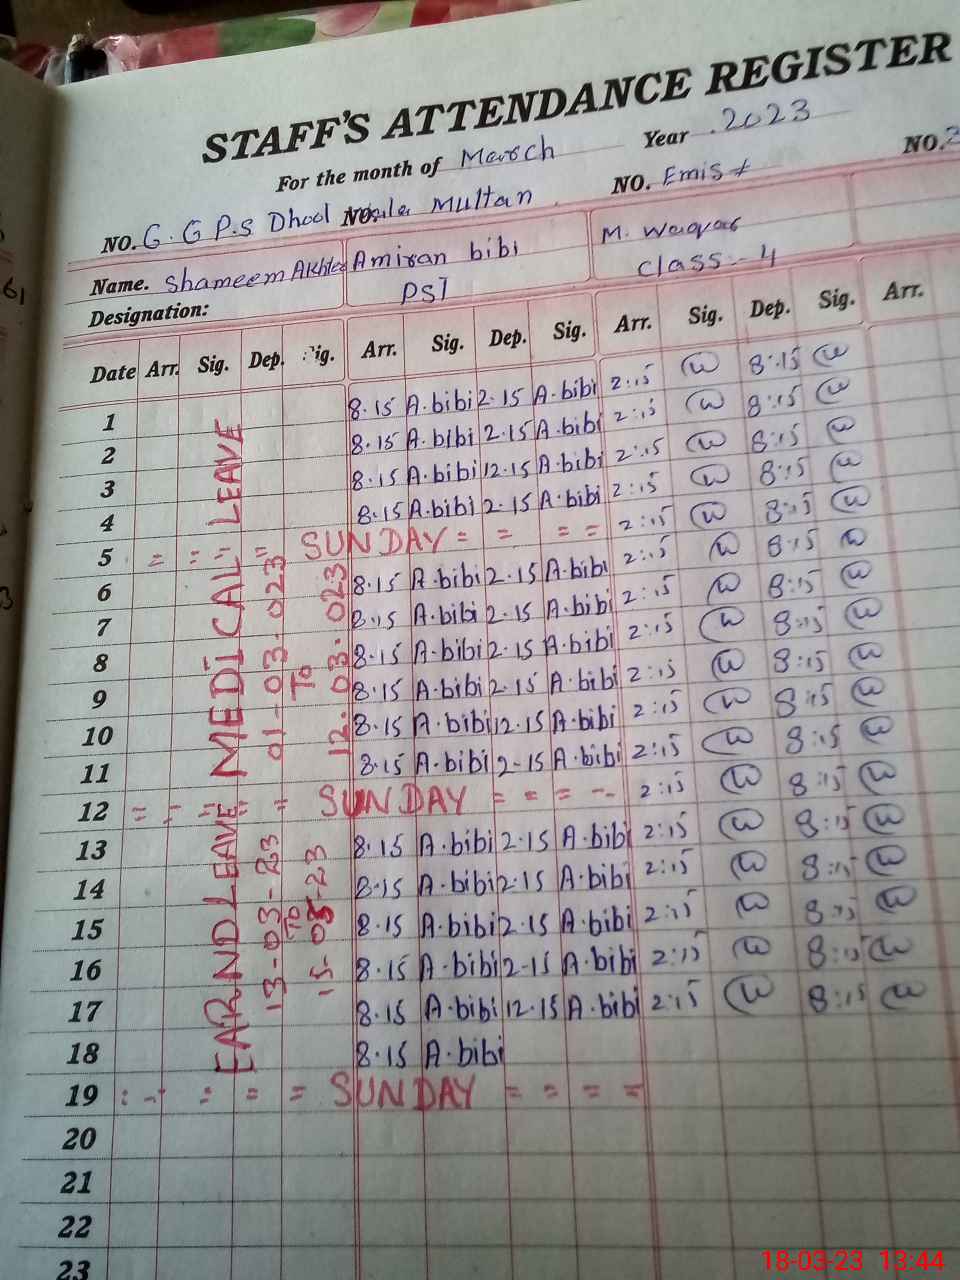 STAFF'S ATTENDANCE REGISTER
For the month of March Year 2023
NO. G. G P.S Dhool Multan NO. Emis # NO.
Name. Shameem Akhter Amiran bibi M. Waqas
Designation: PST Class - 4
Date Arr. Sig. Dep. Sig. Arr. Sig. Dep. Sig. Arr. Sig. Dep. Sig. Arr.
1 8.15 A.bibi 2.15 A.bibi 2:15 W 8:15 W
2 8.15 A.bibi 2.15 A.bibi 2:15 W 8:15 W
3 8.15 A.bibi 12.15 A.bibi 2:15 W 8:15 W
4 8.15 A.bibi 2.15 A.bibi 2:15 W 8:15 W
5 = = = = SUNDAY = = = = 2:15 W 8:15 W
6 8.15 A.bibi 2.15 A.bibi 2:15 W 8:15 W
7 8:15 A.bibi 2.15 A.bibi 2:15 W 8:15 W
8 8.15 A.bibi 2.15 A.bibi 2:15 W 8:15 W
9 8.15 A.bibi 2.15 A.bibi 2:15 W 8:15 W
10 8.15 A.bibi 12.15 A.bibi 2:15 W 8:15 W
11 8.15 A.bibi 2-15 A.bibi 2:15 W 8:15 W
12 = = = = = SUNDAY = = = = 2:15 W 8:15 W
13 8.15 A.bibi 2.15 A.bibi 2:15 W 8:15 W
14 8.15 A.bibi 2.15 A.bibi 2:15 W 8:15 W
15 8.15 A.bibi 2.15 A.bibi 2:15 W 8:15 W
16 8.15 A.bibi 2-15 A.bibi 2:15 W 8:15 W
17 8.15 A.bibi 12.15 A.bibi 2:15 W 8:15 W
18 8.15 A.bibi
19 = = = = = SUNDAY = = = =
20
21
22
23
MEDICAL LEAVE
01-03.023
To
12.03.023
EARND LEAVE
13-03-23
TO
15-03-23
61
3
18-03-23 13:44